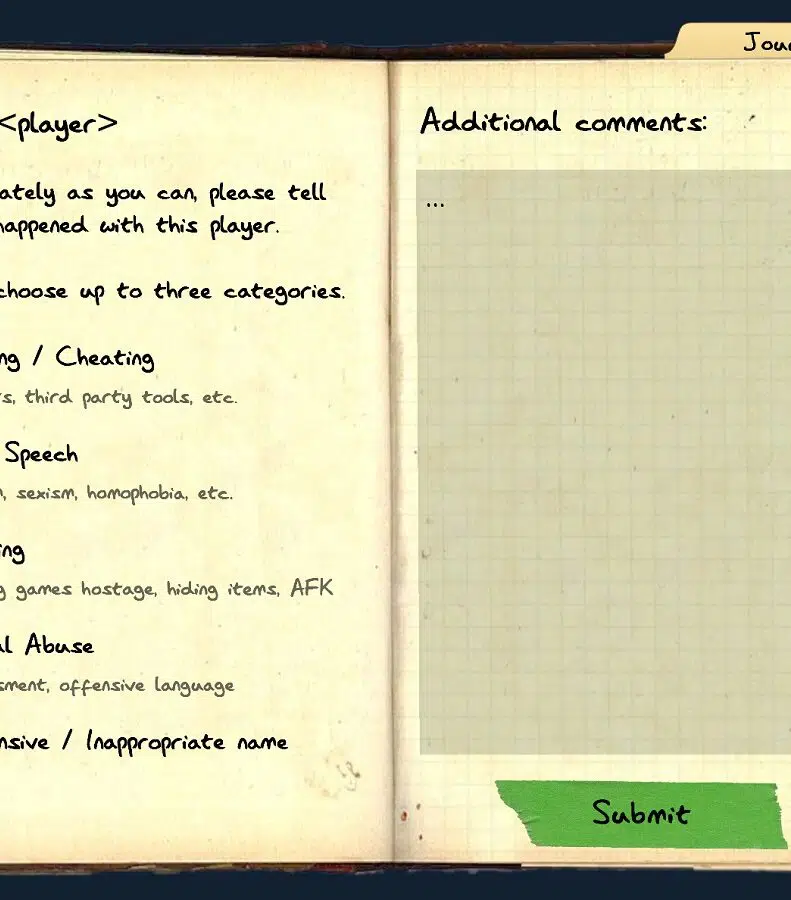 Jou
<player>
ately as you can, please tell
happened with this player.
choose up to three categories.
ng / Cheating
s, third party tools, etc.
Speech
, sexism, homophobia, etc.
ing
g games hostage, hiding items, AFK
l Abuse
sment, offensive language
nsive / Inappropriate name
Additional comments:
...
Submit